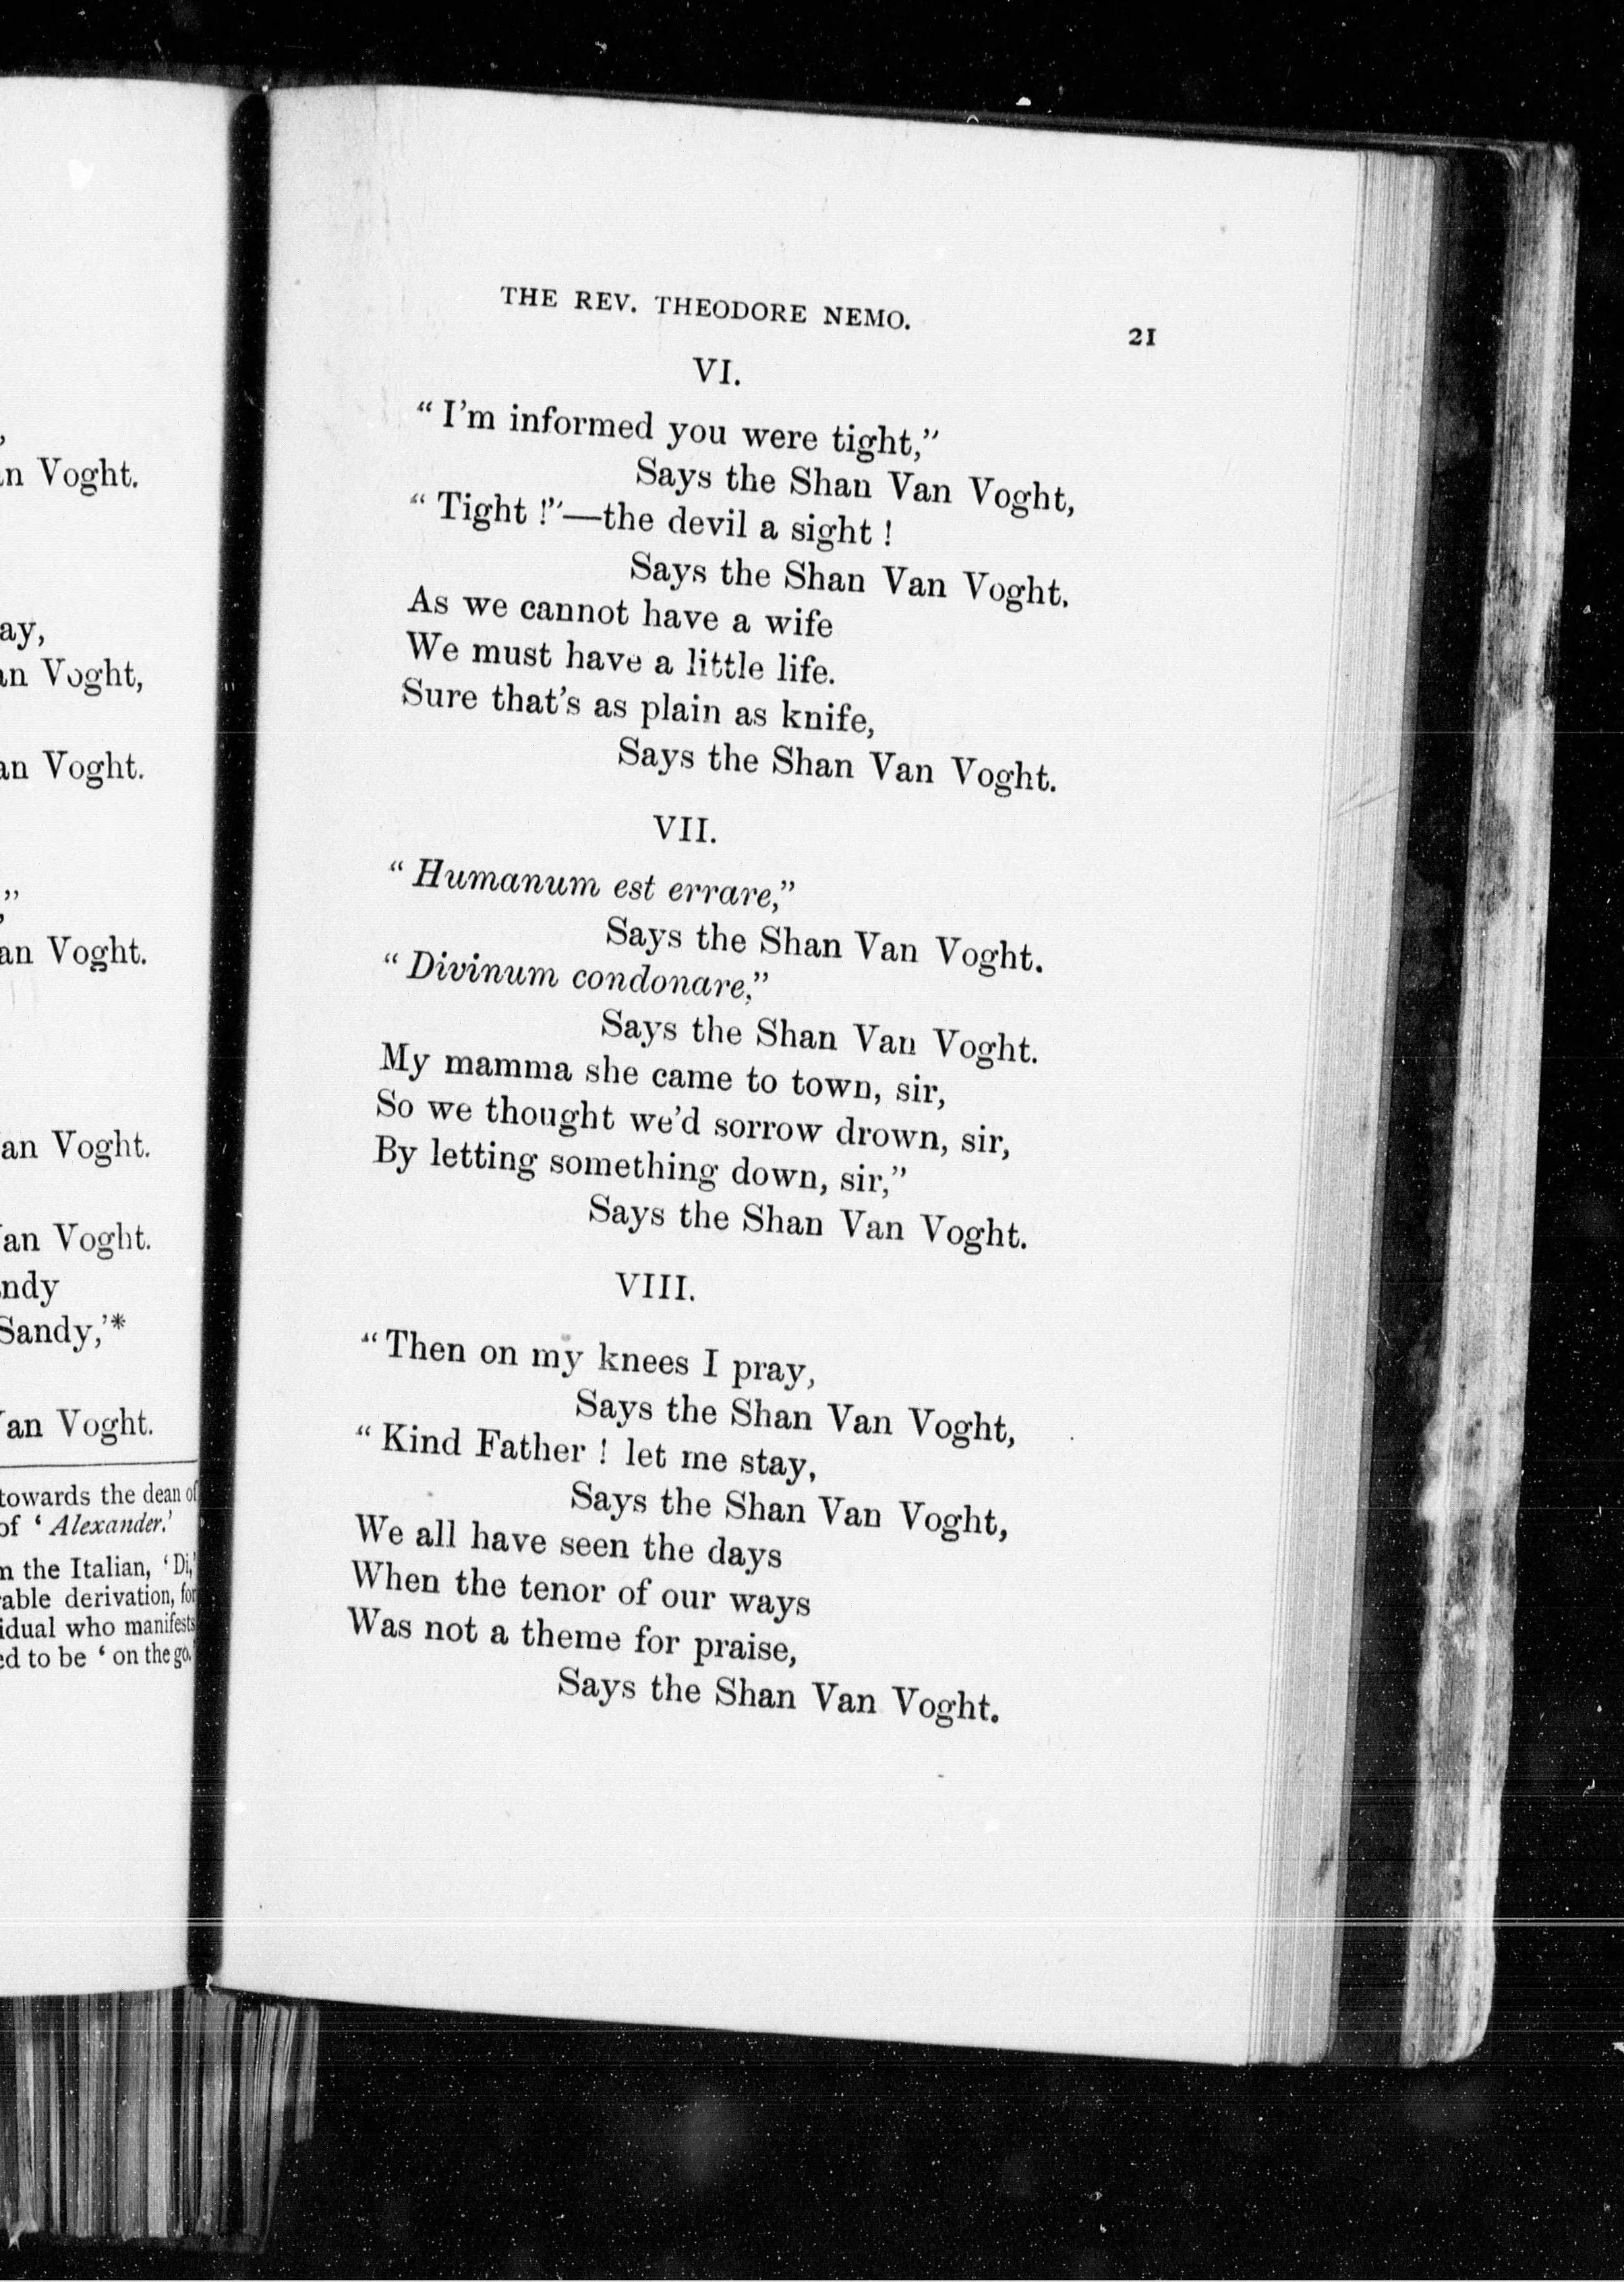 n Voght.
ay,
an Voght,
an Voght.
,”
an Voght.
an Voght.
Van Voght.
ndy
Sandy,’*
Van Voght.
towards the dean of
of ‘ Alexander.’
m the Italian, ‘ Di,’
able derivation, for
idual who manifests
ed to be ‘ on the go.’
THE REV. THEODORE NEMO. 21
VI.
“ I’m informed you were tight,”
Says the Shan Van Voght,
“ Tight !”—the devil a sight !
Says the Shan Van Voght.
As we cannot have a wife
We must have a little life.
Sure that’s as plain as knife,
Says the Shan Van Voght.
VII.
“ Humanum est errare,”
Says the Shan Van Voght.
“ Divinum condonare,”
Says the Shan Van Voght.
My mamma she came to town, sir,
So we thought we’d sorrow drown, sir,
By letting something down, sir,”
Says the Shan Van Voght.
VIII.
“ Then on my knees I pray,
Says the Shan Van Voght,
“ Kind Father ! let me stay,
Says the Shan Van Voght,
We all have seen the days
When the tenor of our ways
Was not a theme for praise,
Says the Shan Van Voght.